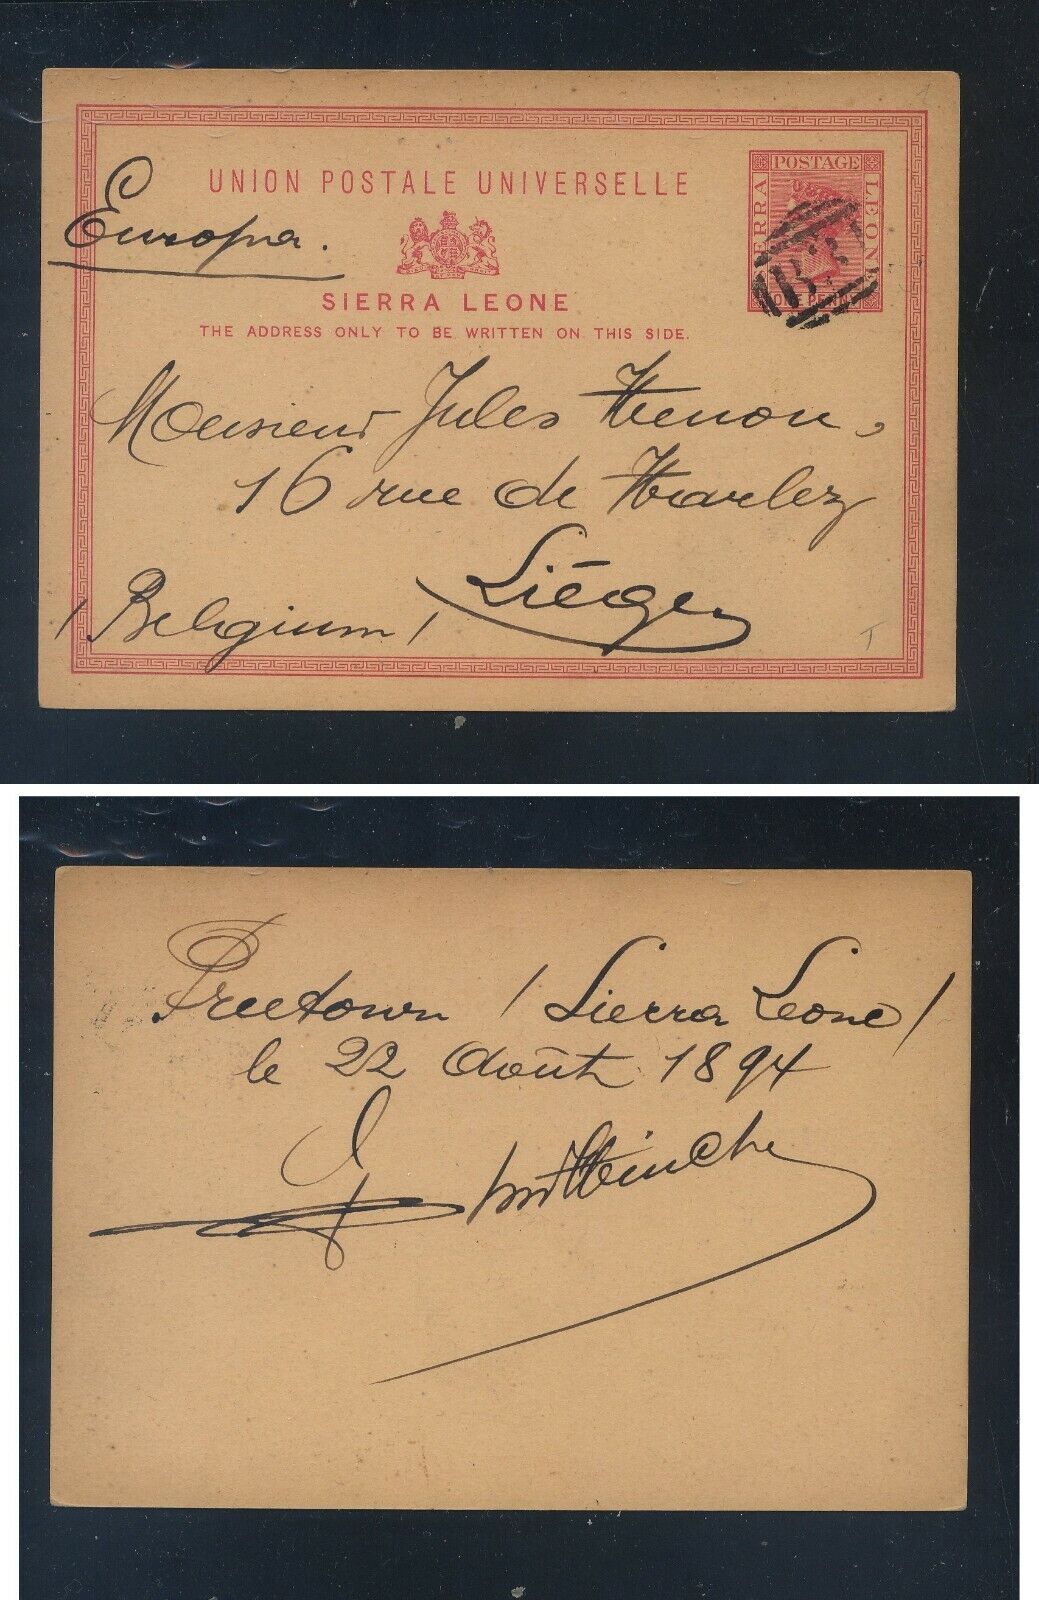 UNION POSTALE UNIVERSELLE
POSTAGE
SIERRA LEONE
ONE PENNY
Europa.
SIERRA LEONE
THE ADDRESS ONLY TO BE WRITTEN ON THIS SIDE.
Monsieur Jules Henon,
16 rue de Harlez
Liége
/Belgium/
T
Freetown /Sierra Leone/
le 22 Août 1894